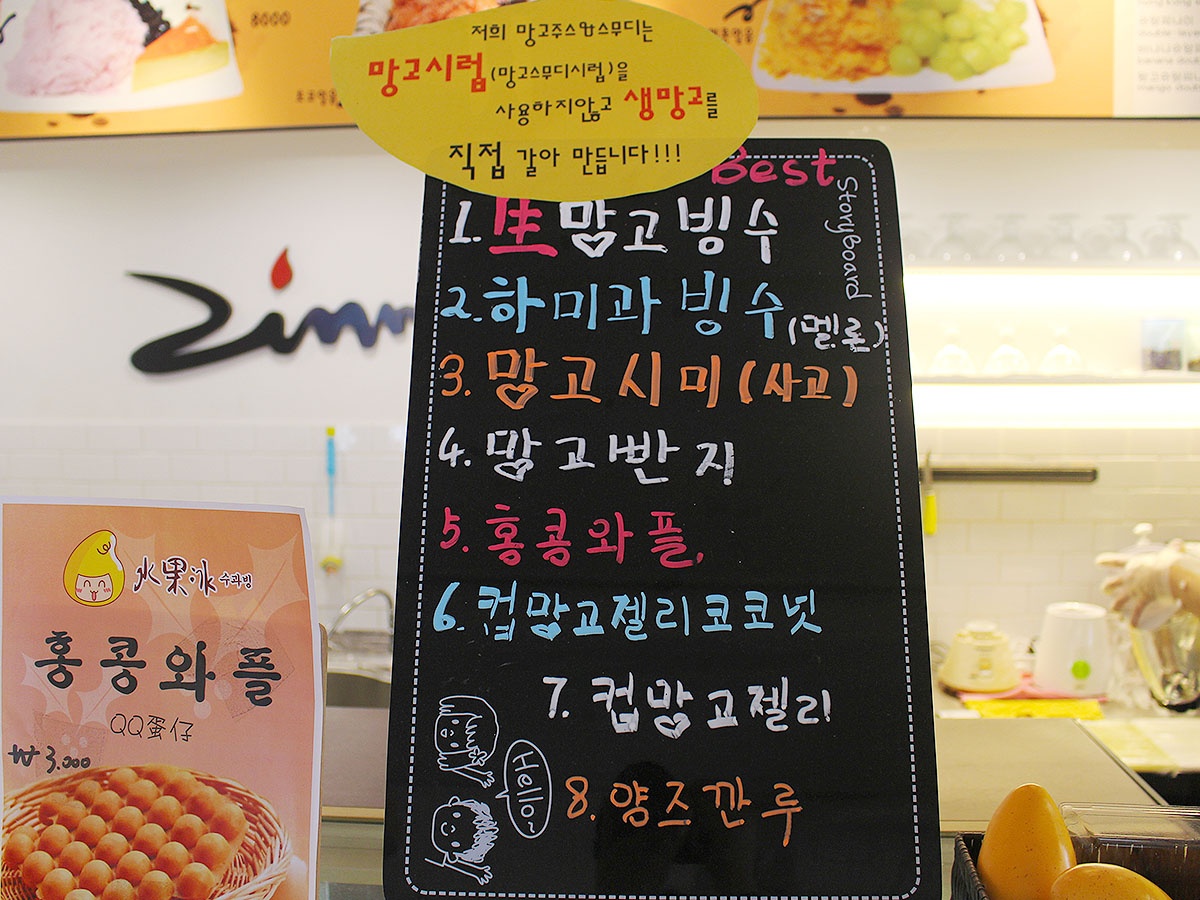 8000
저희 망고주스&스무디는
망고시럽(망고스무디시럽)을
사용하지않고 생망고를
직접 갈아 만듭니다!!!
Best
StoryBoard
1.生망고빙수
2.하미과빙수(멜론)
3.망고시미(사고)
4.망고빤지
5.홍콩와플.
6.컵망고젤리코코넛
7.컵망고젤리
8.양즈깐루
Hello~
水果冰 수과빙
홍콩와플
QQ蛋仔
₩3,000